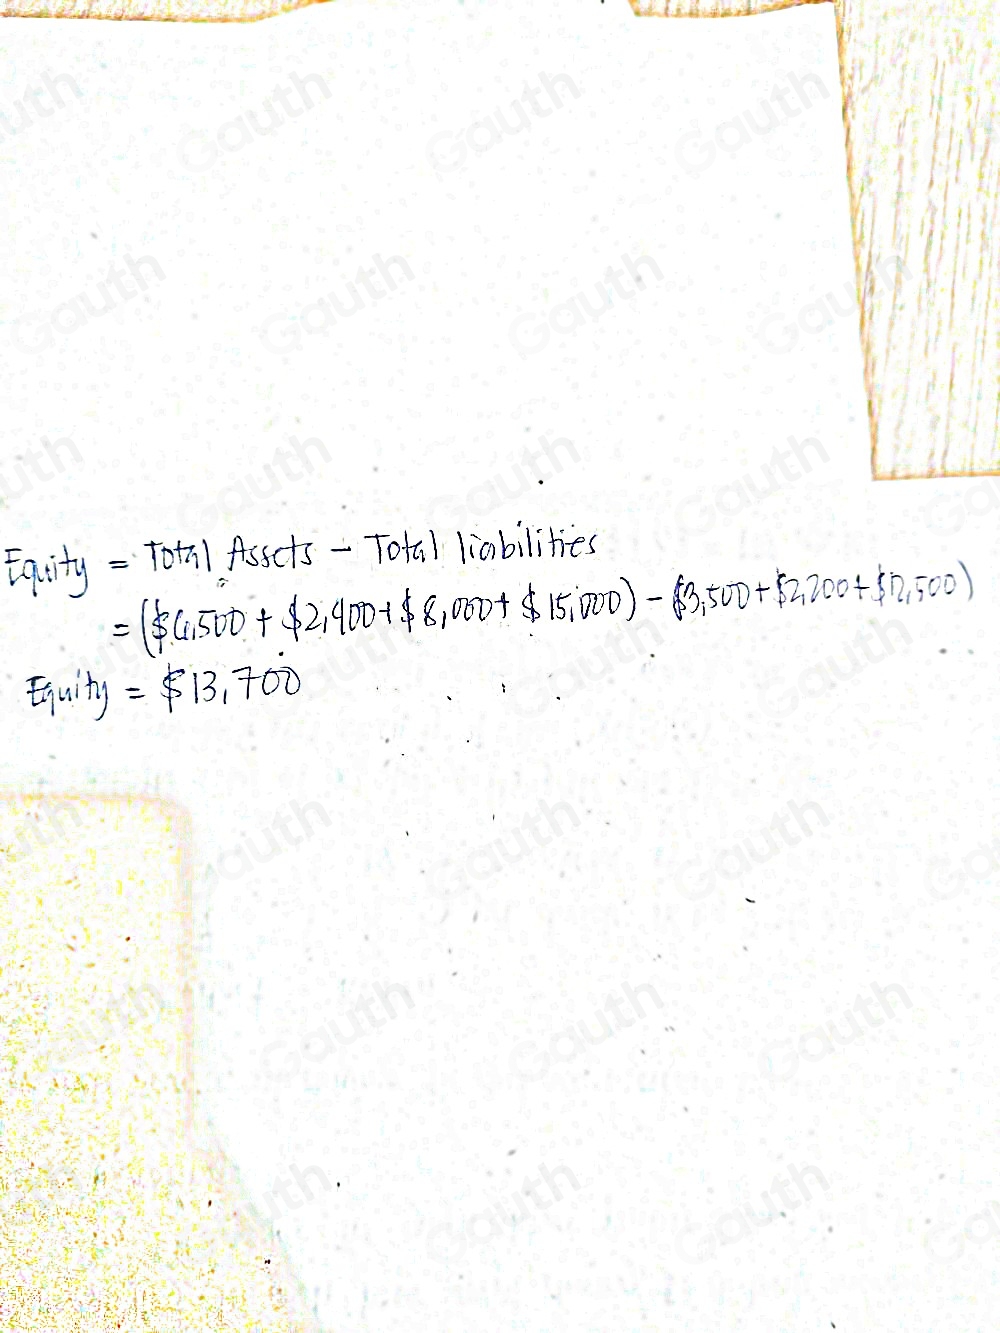 Equity = Total Assets - Total liabilities
= ($6,500 + $2,400 + $8,000 + $15,000) - ($3,500 + $2,200 + $12,500)
Equity = $13,700
Gauth